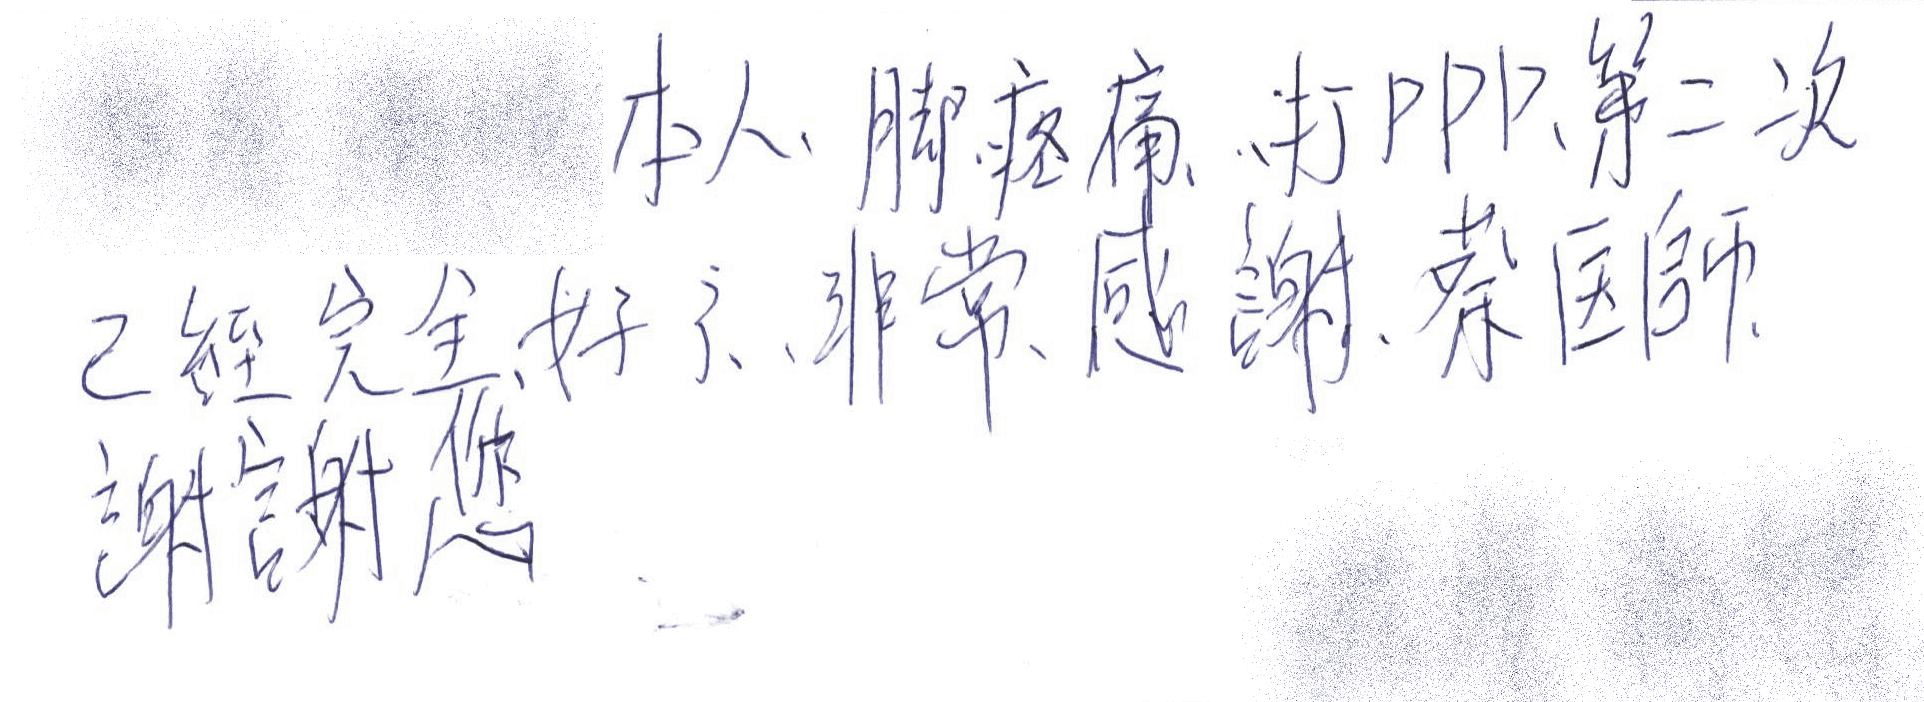 本人、腳疼痛、打PPP、第二次
已經完全、好了、非常、感謝、蔡医師、
謝謝您